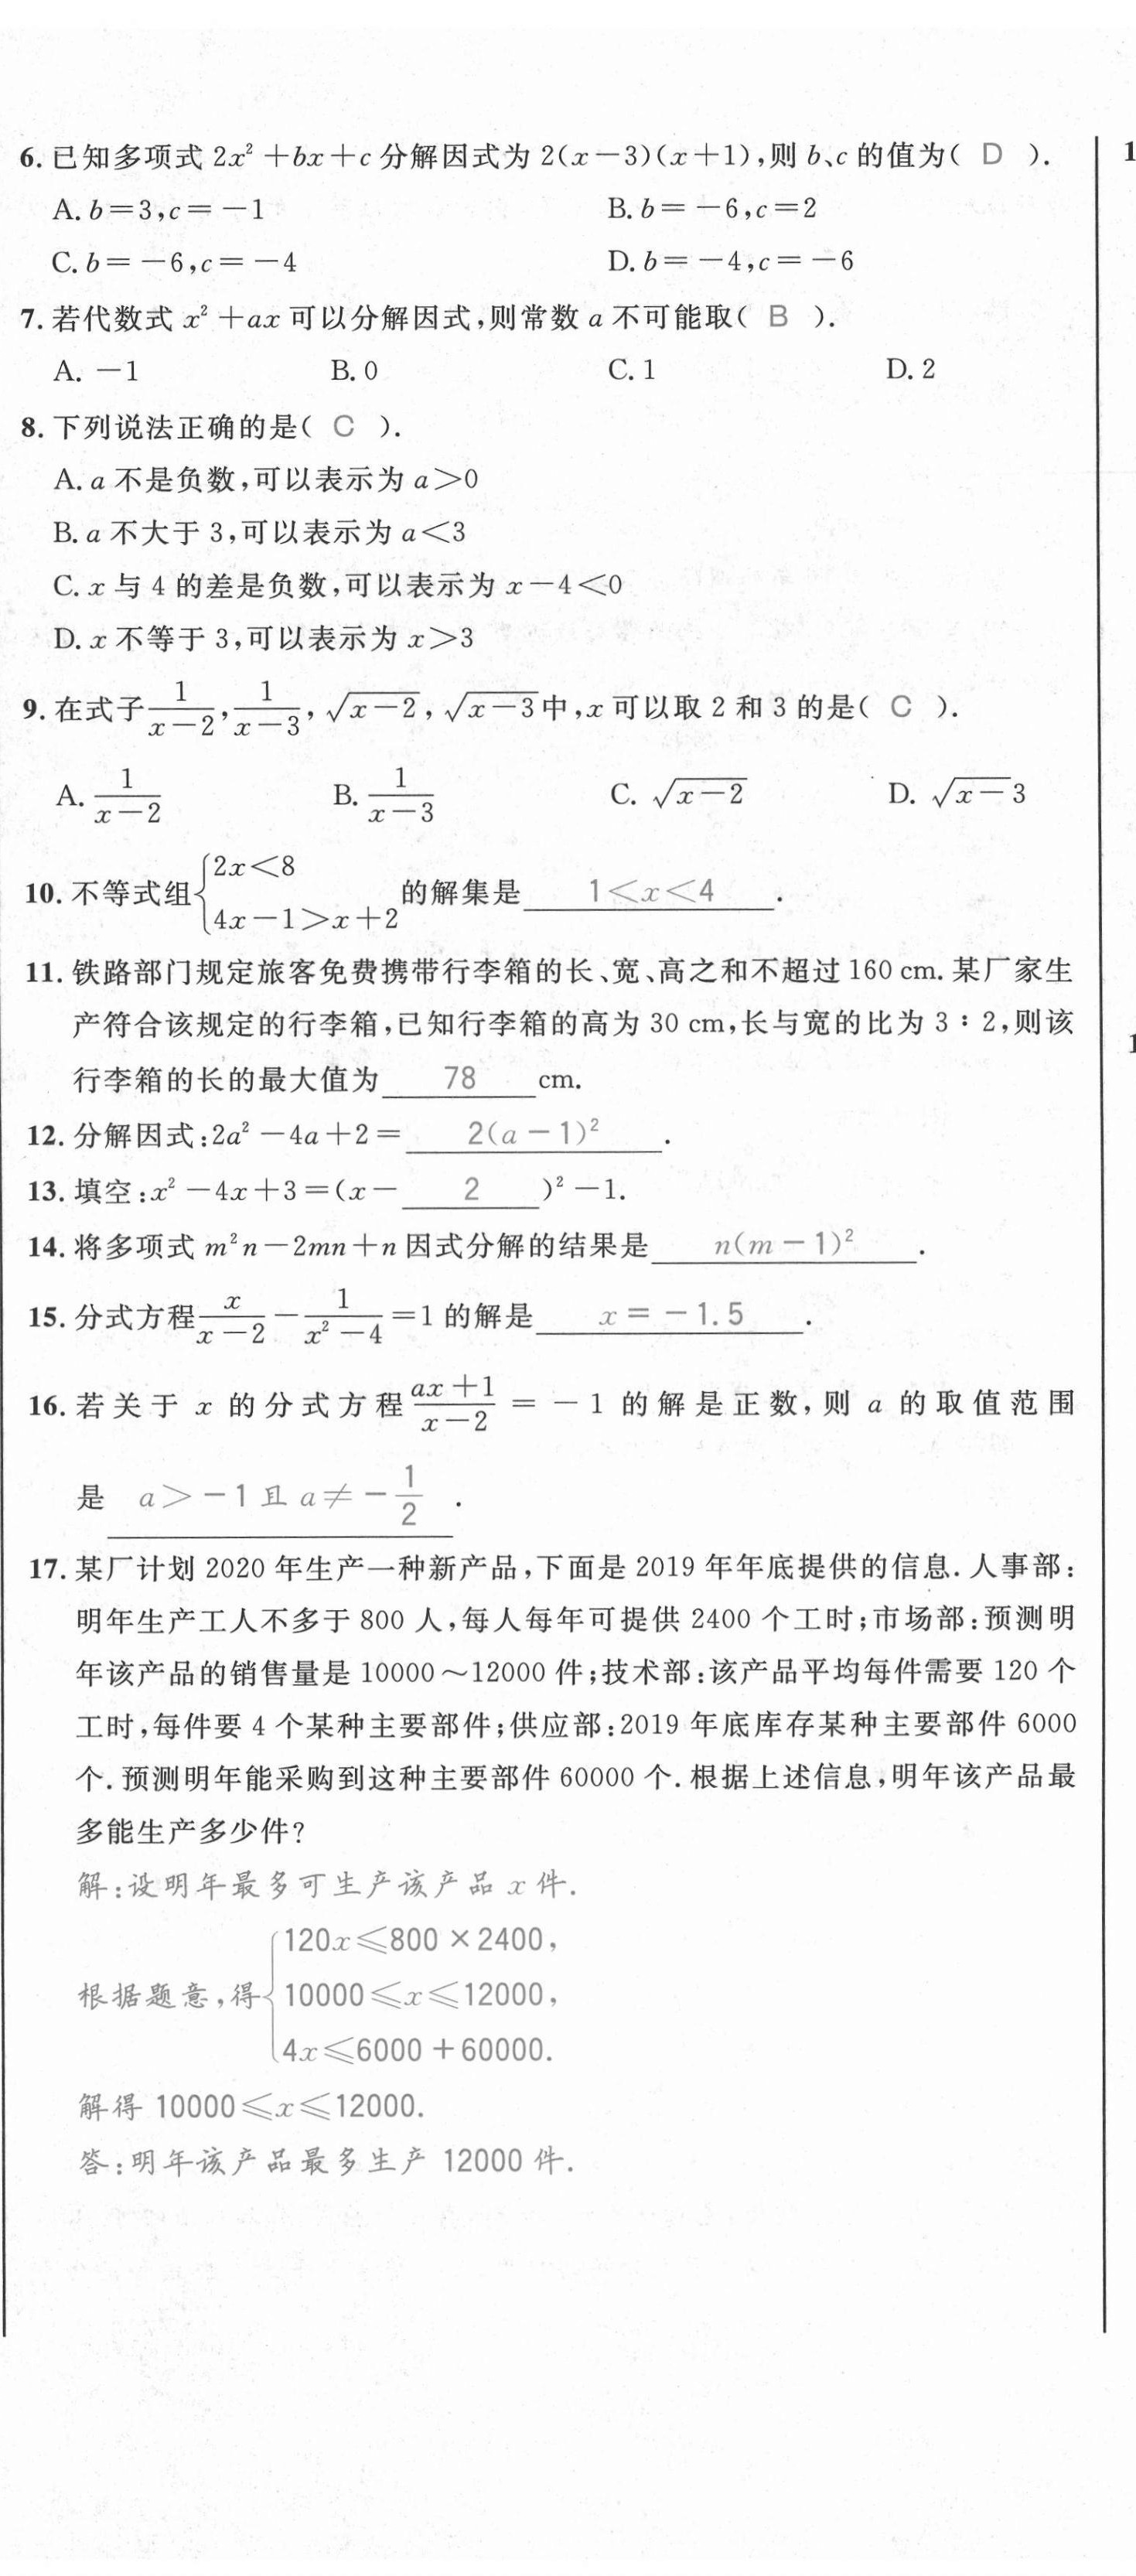 6. 已知多项式 2x²+bx+c 分解因式为 2(x-3)(x+1),则 b、c 的值为( D ).
A. b=3,c=-1 B. b=-6,c=2
C. b=-6,c=-4 D. b=-4,c=-6
7. 若代数式 x²+ax 可以分解因式,则常数 a 不可能取( B ).
A. -1 B. 0 C. 1 D. 2
8. 下列说法正确的是( C ).
A. a 不是负数,可以表示为 a>0
B. a 不大于 3,可以表示为 a<3
C. x 与 4 的差是负数,可以表示为 x-4<0
D. x 不等于 3,可以表示为 x>3
9. 在式子 1/(x-2), 1/(x-3), √(x-2), √(x-3) 中,x 可以取 2 和 3 的是( C ).
A. 1/(x-2) B. 1/(x-3) C. √(x-2) D. √(x-)3
10. 不等式组 { 2x<8 4x-1>x+2 的解集是 1<x<4 .
11. 铁路部门规定旅客免费携带行李箱的长、宽、高之和不超过 160 cm. 某厂家生
产符合该规定的行李箱,已知行李箱的高为 30 cm,长与宽的比为 3:2,则该
行李箱的长的最大值为 78 cm.
12. 分解因式:2a²-4a+2= 2(a-1)² .
13. 填空:x²-4x+3=(x- 2 )²-1.
14. 将多项式 m²n-2mn+n 因式分解的结果是 n(m-1)² .
15. 分式方程 x/(x-2) - 1/(x²-4) =1 的解是 x=-1.5 .
16. 若关于 x 的分式方程 (ax+1)/(x-2) = -1 的解是正数,则 a 的取值范围
是 a>-1 且 a≠-1/2 .
17. 某厂计划 2020 年生产一种新产品,下面是 2019 年年底提供的信息. 人事部:
明年生产工人不多于 800 人,每人每年可提供 2400 个工时;市场部:预测明
年该产品的销售量是 10000~12000 件;技术部:该产品平均每件需要 120 个
工时,每件要 4 个某种主要部件;供应部:2019 年底库存某种主要部件 6000
个. 预测明年能采购到这种主要部件 60000 个. 根据上述信息,明年该产品最
多能生产多少件?
解:设明年最多可生产该产品 x 件.
根据题意,得 { 120x≤800×2400,
10000≤x≤12000,
4x≤6000+60000.
解得 10000≤x≤12000.
答:明年该产品最多生产 12000 件.